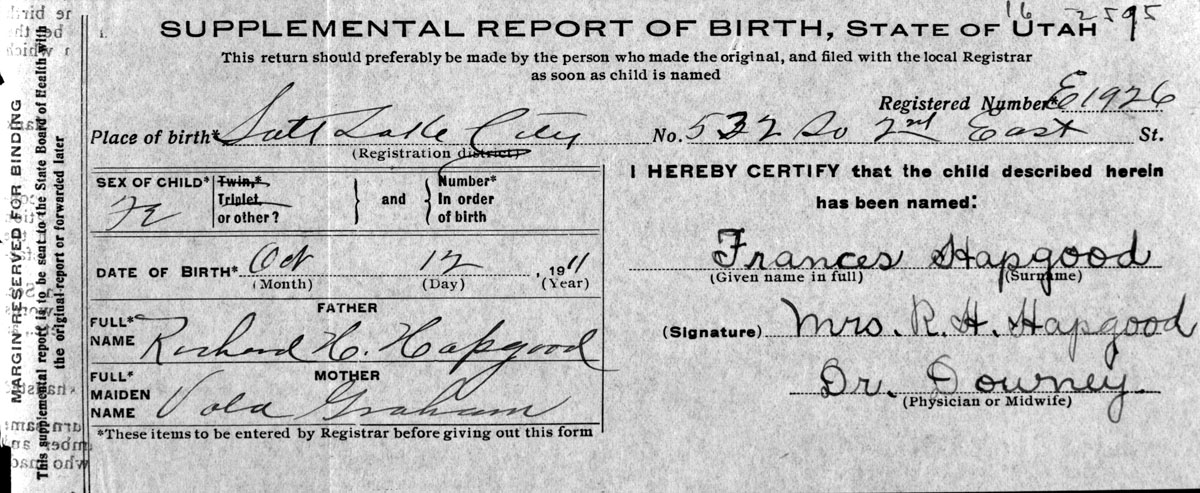 16 2595
SUPPLEMENTAL REPORT OF BIRTH, STATE OF UTAH
This return should preferably be made by the person who made the original, and filed with the local Registrar
as soon as child is named
Registered Number* E1926
Place of birth* Salt Lake City No. 532 So 2nd East St.
(Registration district)
SEX OF CHILD* Fe
Twin,*
Triplet,
or other?
and
Number*
In order
of birth
DATE OF BIRTH* Oct 12, 1911
(Month) (Day) (Year)
FATHER
FULL*
NAME Richard H. Hapgood
MOTHER
FULL*
MAIDEN
NAME Graham
*These items to be entered by Registrar before giving out this form
I HEREBY CERTIFY that the child described herein
has been named:
Frances Hapgood
(Given name in full) (Surname)
(Signature) Mrs. R. H. Hapgood
Dr. Downey.
(Physician or Midwife)
MARGIN RESERVED FOR BINDING
This supplemental report is to be sent to the State Board of Health with
the original report or forwarded later